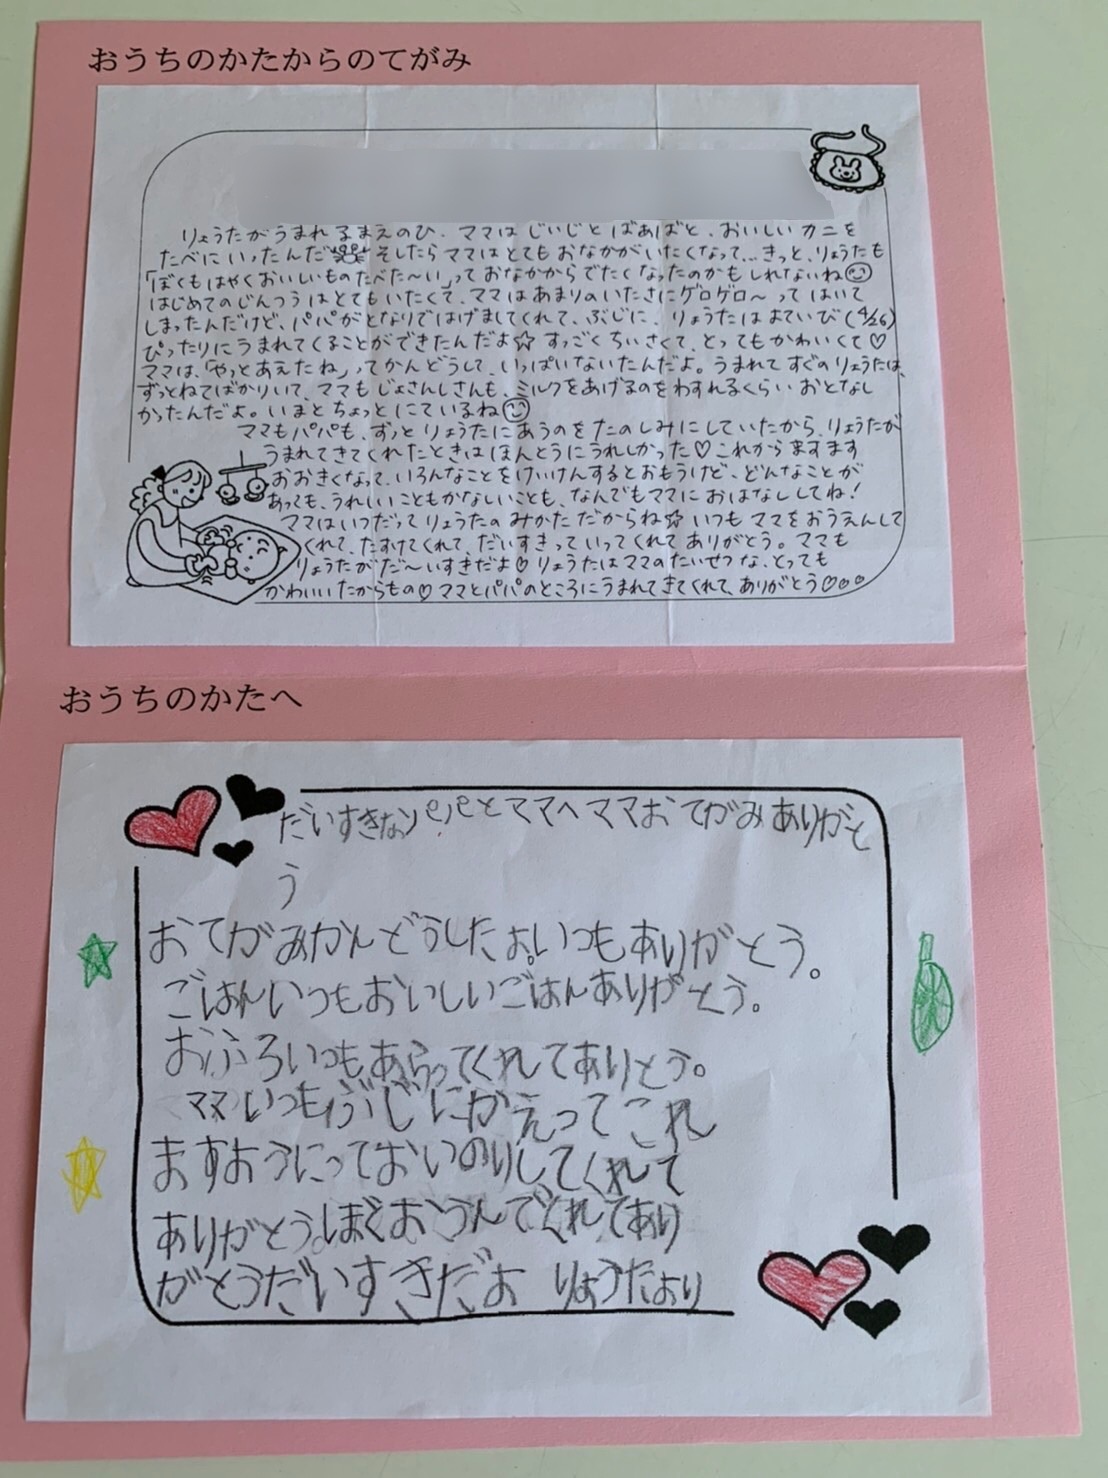 おうちのかたからのてがみ
りょうたがうまれるまえのひ、ママはじいじとばあばと、おいしいカニを
たべにいったんだ そしたらママはとてもおなかがいたくなって…きっと、りょうたも
「ぼくもはやくおいしいものたべた〜い」っておなかからでたくなったのかもしれないね
はじめてのじんつうはとてもいたくて、ママはあまりのいたさにゲロゲロ〜ってはいて
しまったんだけど、パパがとなりではげましてくれて、ぶじに、りょうたはよていび(4/26)
ぴったりにうまれてくることができたんだよ☆すっごくちいさくて、とってもかわいくて♡
ママは、「やっとあえたね」ってかんどうして、いっぱいないたんだよ。うまれてすぐのりょうたは、
ずっとねてばかりいて、ママもじょさんしさんも、ミルクをあげるのをわすれるくらいおとなし
かったんだよ。いまとちょっとにているね
ママもパパも、ずっとりょうたにあうのをたのしみにしていたから、りょうたが
うまれてきてくれたときはほんとうにうれしかった♡これからますます
おおきくなって、いろんなことをけいけんするとおもうけど、どんなことが
あっても、うれしいこともかなしいことも、なんでもママにおはなししてね!
ママはいつだってりょうたのみかただからね☆いつもママをおうえんして
くれて、たすけてくれて、だいすきっていってくれてありがとう。ママも
りょうたがだ〜いすきだよ♡りょうたはママのたいせつな、とっても
かわいいたからもの♡ママとパパのところにうまれてきてくれて、ありがとう♡♡♡
おうちのかたへ
だいすきなパパとママへママおてがみありがと
う
おてがみかんどうしたよ。いつもありがとう。
ごはんいつもおいしいごはんありがとう。
おふろいつもあらってくれてありとう。
ママいつもぶじにかえってこれ
ますおうにっておいのりしてくれて
ありがとう。ぼくおうんでくれてあり
がとうだいすきだよ りょうたより